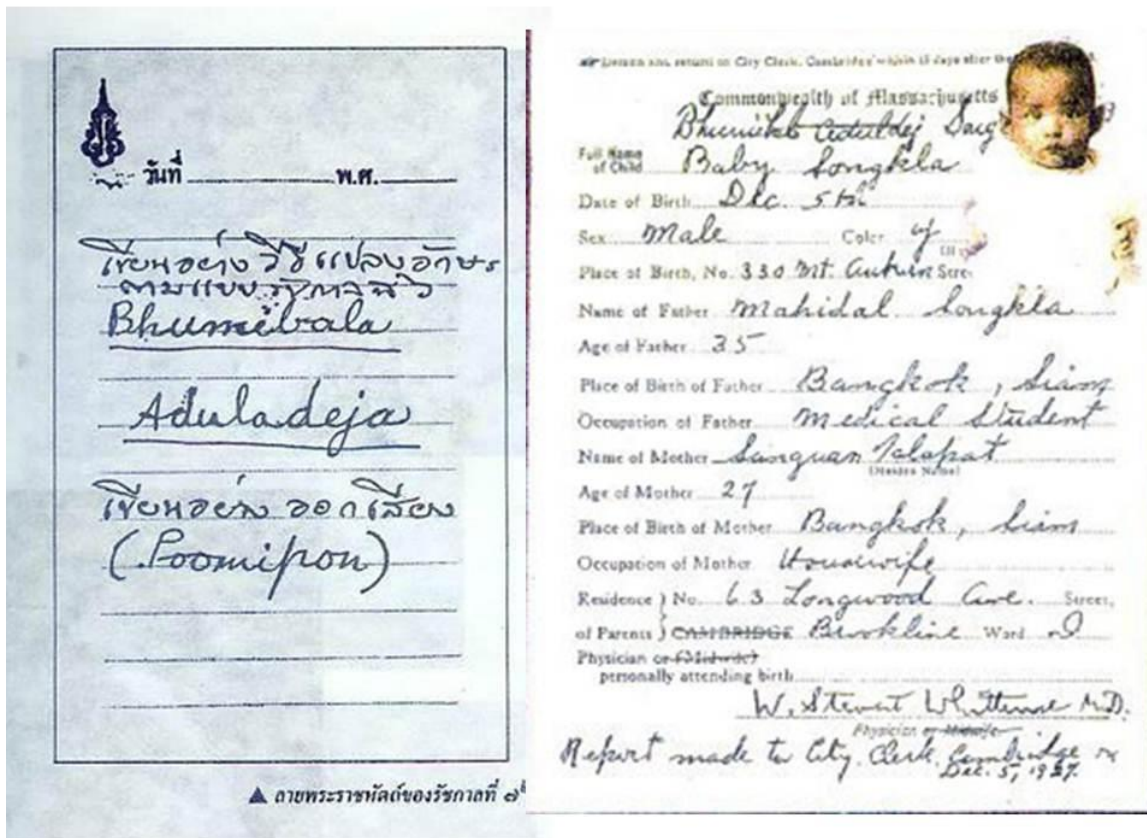 วันที่ พ.ศ.
เขียนอย่างวิธีแปลงอักษร
ตามแบบรัชกาลที่ ๖
Bhumibala
Aduladeja
เขียนอย่างออกเสียง
(Poomipon)
▲ ลายพระราชหัตถ์ของรัชกาลที่ ๗
and return to City Clerk, Cambridge within 15 days after the
Commonwealth of Massachusetts
Bhumibol Aduldej Song
Full Name of Child Baby Songkla
Date of Birth Dec. 5th
Sex Male Color y
Place of Birth, No. 330 Mt. Auburn Street
Name of Father Mahidal Songkla
Age of Father 35
Place of Birth of Father Bangkok, Siam
Occupation of Father Medical Student
Name of Mother Sanguan Talapat
(Maiden Name)
Age of Mother 27
Place of Birth of Mother Bangkok, Siam
Occupation of Mother Housewife
Residence } No. 63 Longwood Ave. Street,
of Parents } CAMBRIDGE Brookline Ward
Physician or (Midwife)
personally attending birth
W. Stewart Whittemore M.D.
Physician or Midwife
Report made to City Clerk, Cambridge
Dec. 5, 1927.